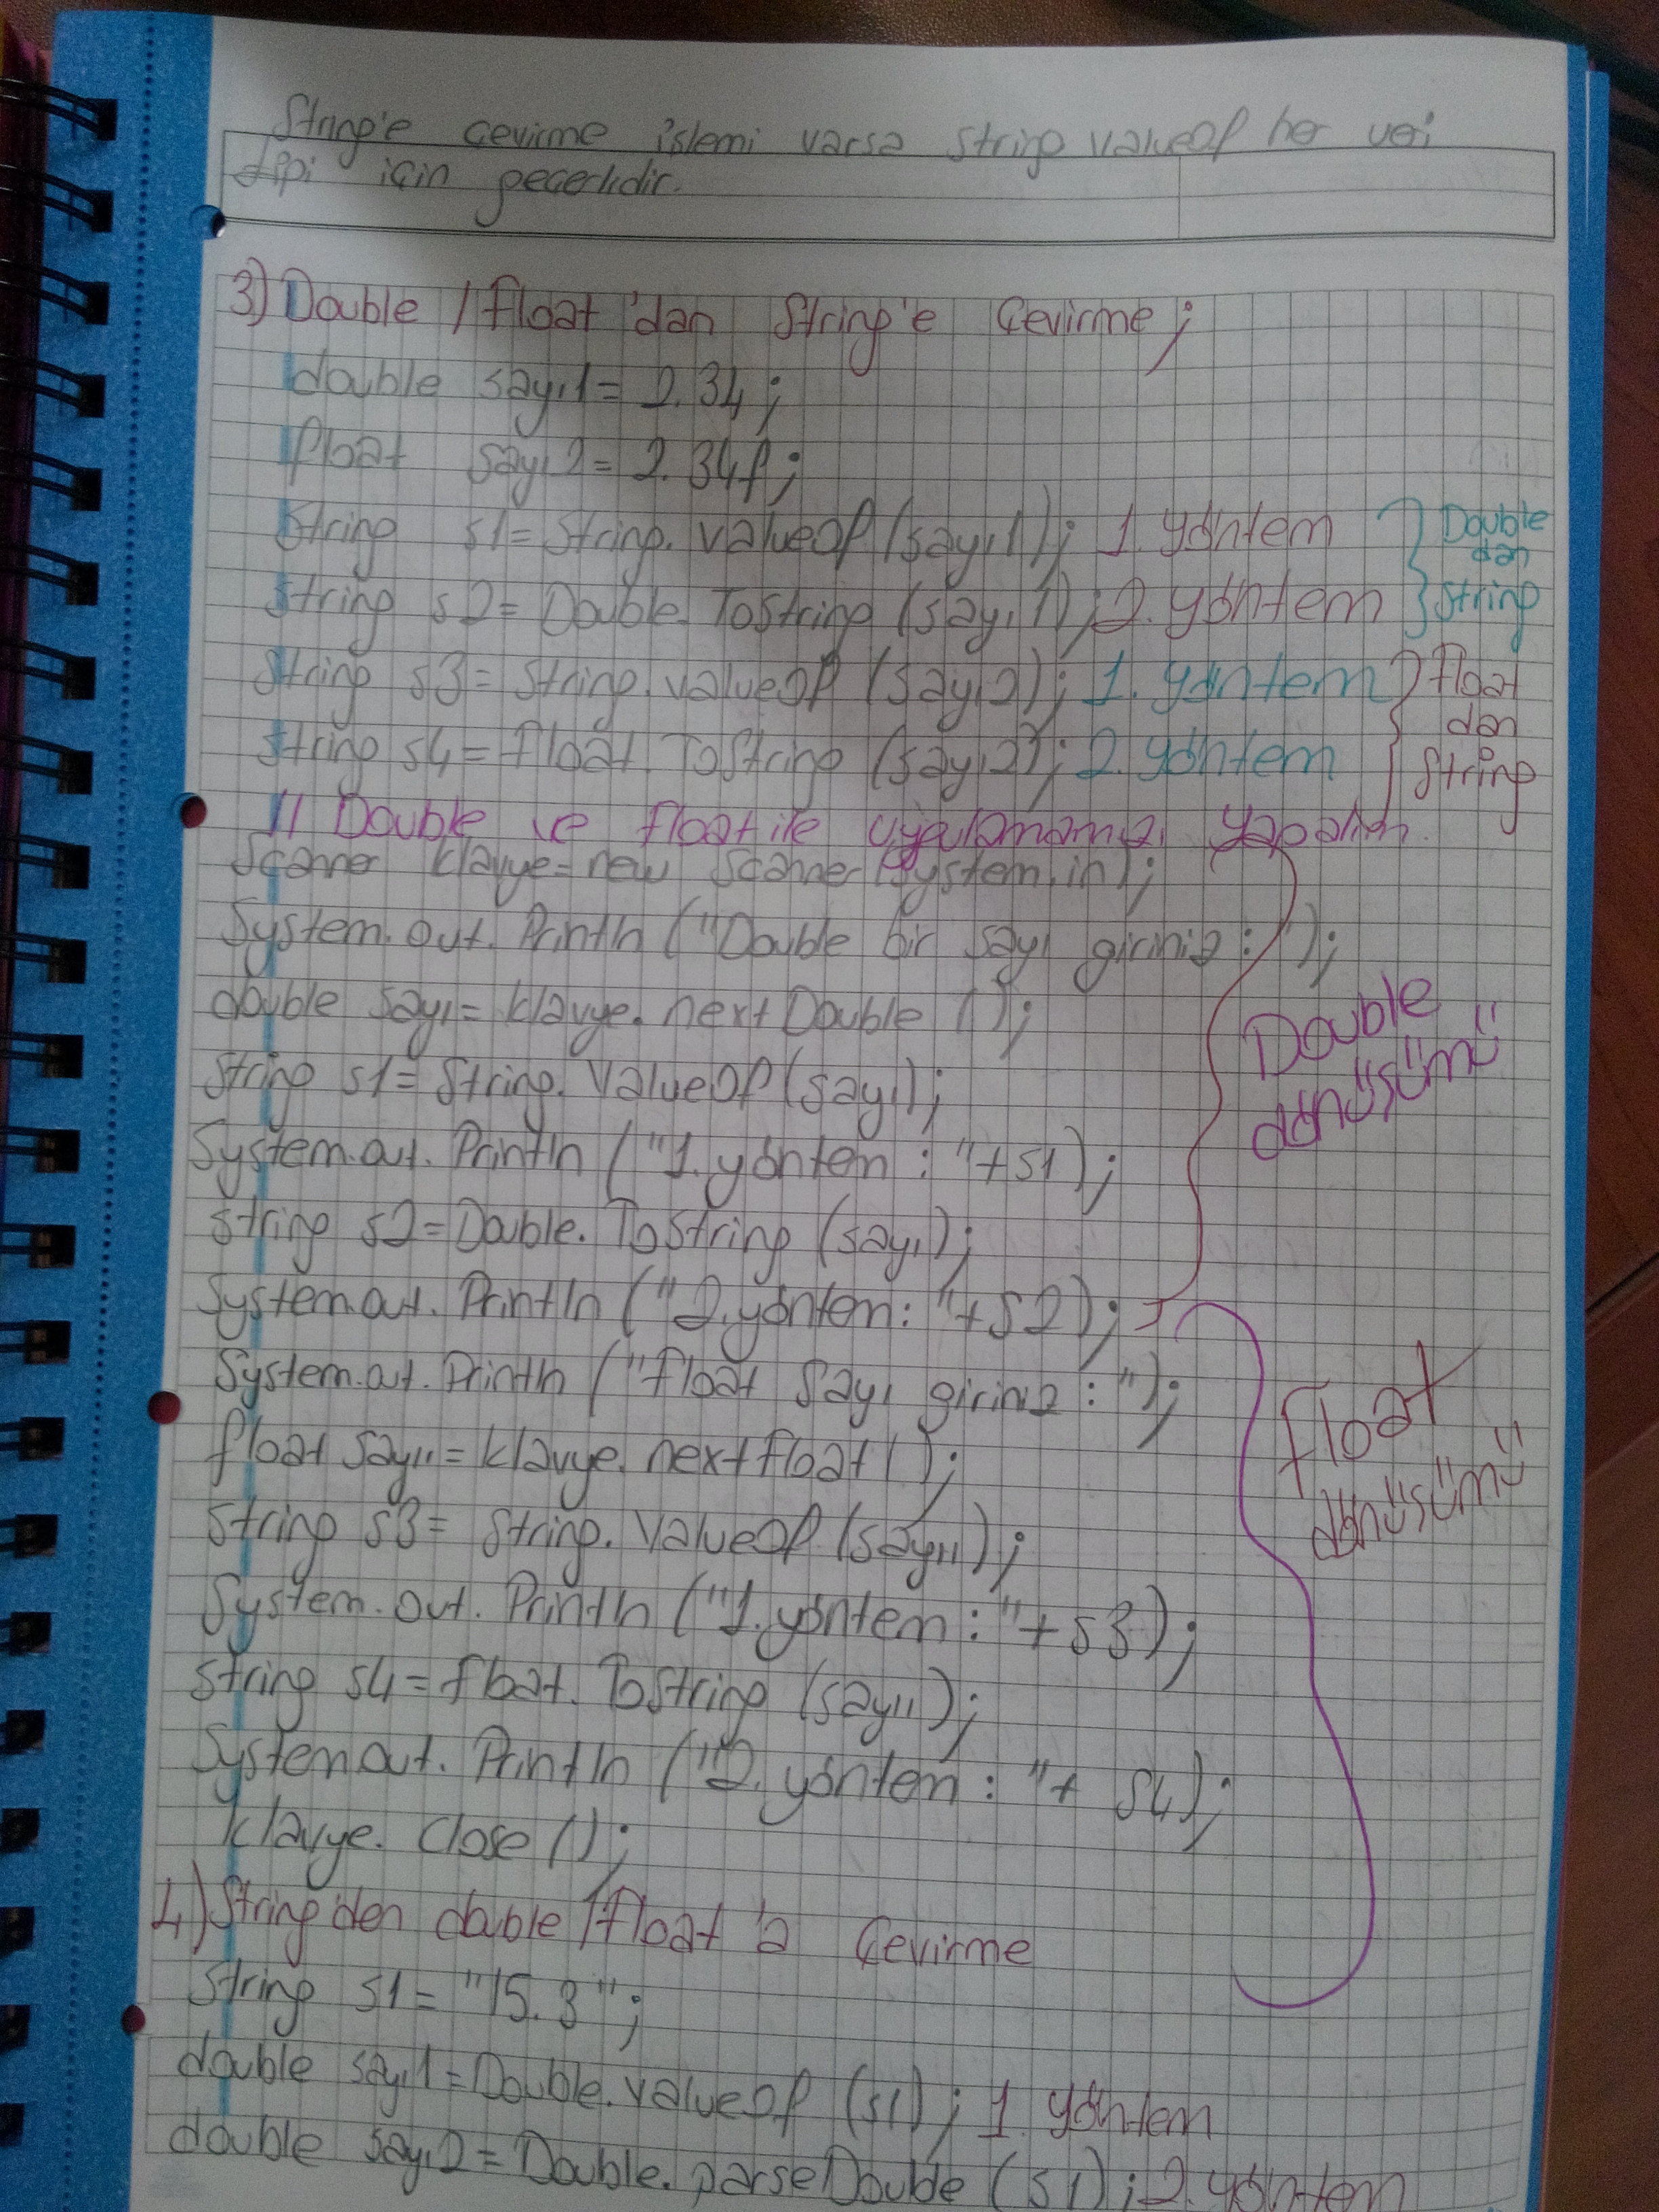 String'e çevirme işlemi varsa String valueOf her veri
tipi için geçerlidir.
3) Double / float 'dan String'e Çevirme;
double sayı1 = 2.34;
float sayı2 = 2.34f;
String s1 = String. valueOf (sayı1); 1. yöntem
String s2 = Double. ToString (sayı1); 2. yöntem
Double dan String
String s3 = String. valueOf (sayı2); 1. yöntem
String s4 = float. ToString (sayı2); 2. yöntem
float dan String
// Double ve float ile uygulamamızı yapalım
Scanner klavye = new Scanner (System.in);
System. out. Println ("Double bir sayı giriniz : ");
double sayı = klavye. nextDouble ();
String s1 = String. ValueOf (sayı);
System.out. Println ("1. yöntem : "+s1);
String s2 = Double. ToString (sayı);
System.out. Println ("2.yöntem: "+s2);
Double dönüşümü
System.out. Println ("float sayı giriniz : ");
float sayıı = klavye. nextfloat ();
String s3 = String. ValueOf (sayıı);
System. out. Println ("1. yöntem : "+s3);
String s4 = float. ToString (sayıı);
System out. Println ("2. yöntem : "+ s4);
klavye. Close ();
float dönüşümü
4) String'den double /float 'a Çevirme
String s1 = "15.3";
double sayı1 = Double. valueOf (s1); 1. yöntem
double sayı2 = Double. parseDouble (s1); 2. yöntem